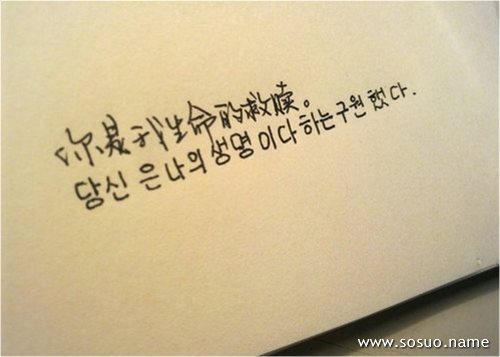 你是我生命的救赎。
당신 은 나의 생명 이다 하는 구원 했 다.
www.sosuo.name